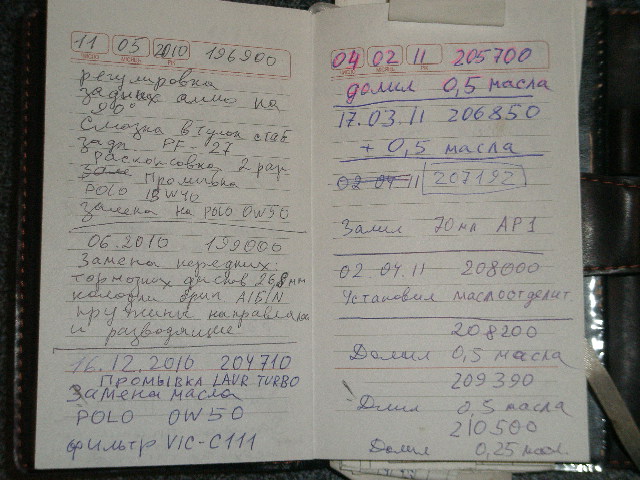 11 05 2010 196900
регулировка
задних аммо на
90°
Смазка втулок стаб
задн PF-27
Раскоксовка 2 раз
Промывка
POLO 10W40
замена на POLO 0W50
06.2010 199000
Замена передних:
тормозных дисков 26,8 мм
колодки ориг
пружины направляла
и разводящие
16.12.2010 204710
ПРОМЫВКА LAVR TURBO
Замена масла
POLO 0W50
фильтр VIC-C111
04 02 11 205700
долил 0,5 масла
17.03.11 206850
+ 0,5 масла
02 04 11 207192
Залил 70мл AP1
02.04.11 208000
Установил маслоотделит.
208200
Долил 0,5 масла
209390
Длил 0,5 масла
210500
Долил 0,25 мал.